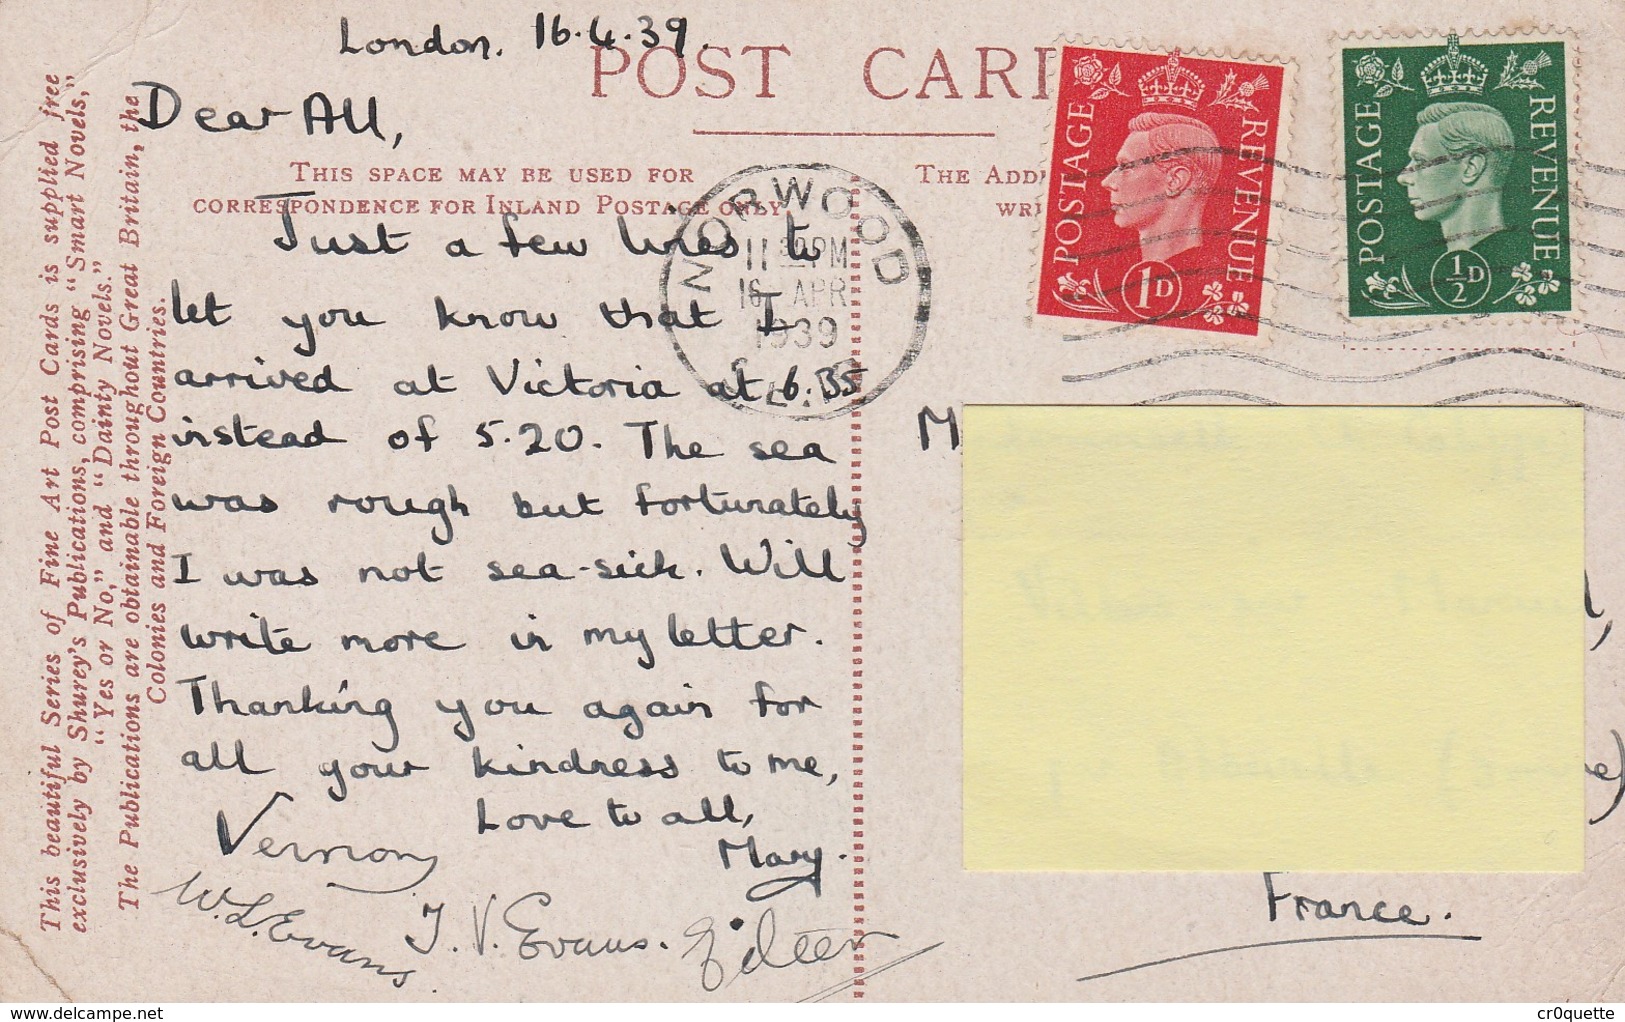 London. 16.4.39.
POST CAR
Dear All,
THIS SPACE MAY BE USED FOR
CORRESPONDENCE FOR INLAND POSTAGE ONLY
THE ADD
WRI
Just a few lines to
let you know that I
arrived at Victoria at 6.35
instead of 5.20. The sea
was rough but fortunately
I was not sea-sick. Will
write more in my letter.
Thanking you again for
all your kindness to me,
Love to all,
Mary.
Vernon
W. L. Evans
J. V. Evans.
Eileen
This beautiful Series of Fine Art Post Cards is supplied free
exclusively by Shurey's Publications, comprising "Smart Novels,"
"Yes or No," and "Dainty Novels."
The Publications are obtainable throughout Great Britain, the
Colonies and Foreign Countries.
NORWOOD
PM
16 APR
1939
S.E.
POSTAGE REVENUE
1D
POSTAGE REVENUE
½D
M
e)
France.
delcampe.net
cr0quette